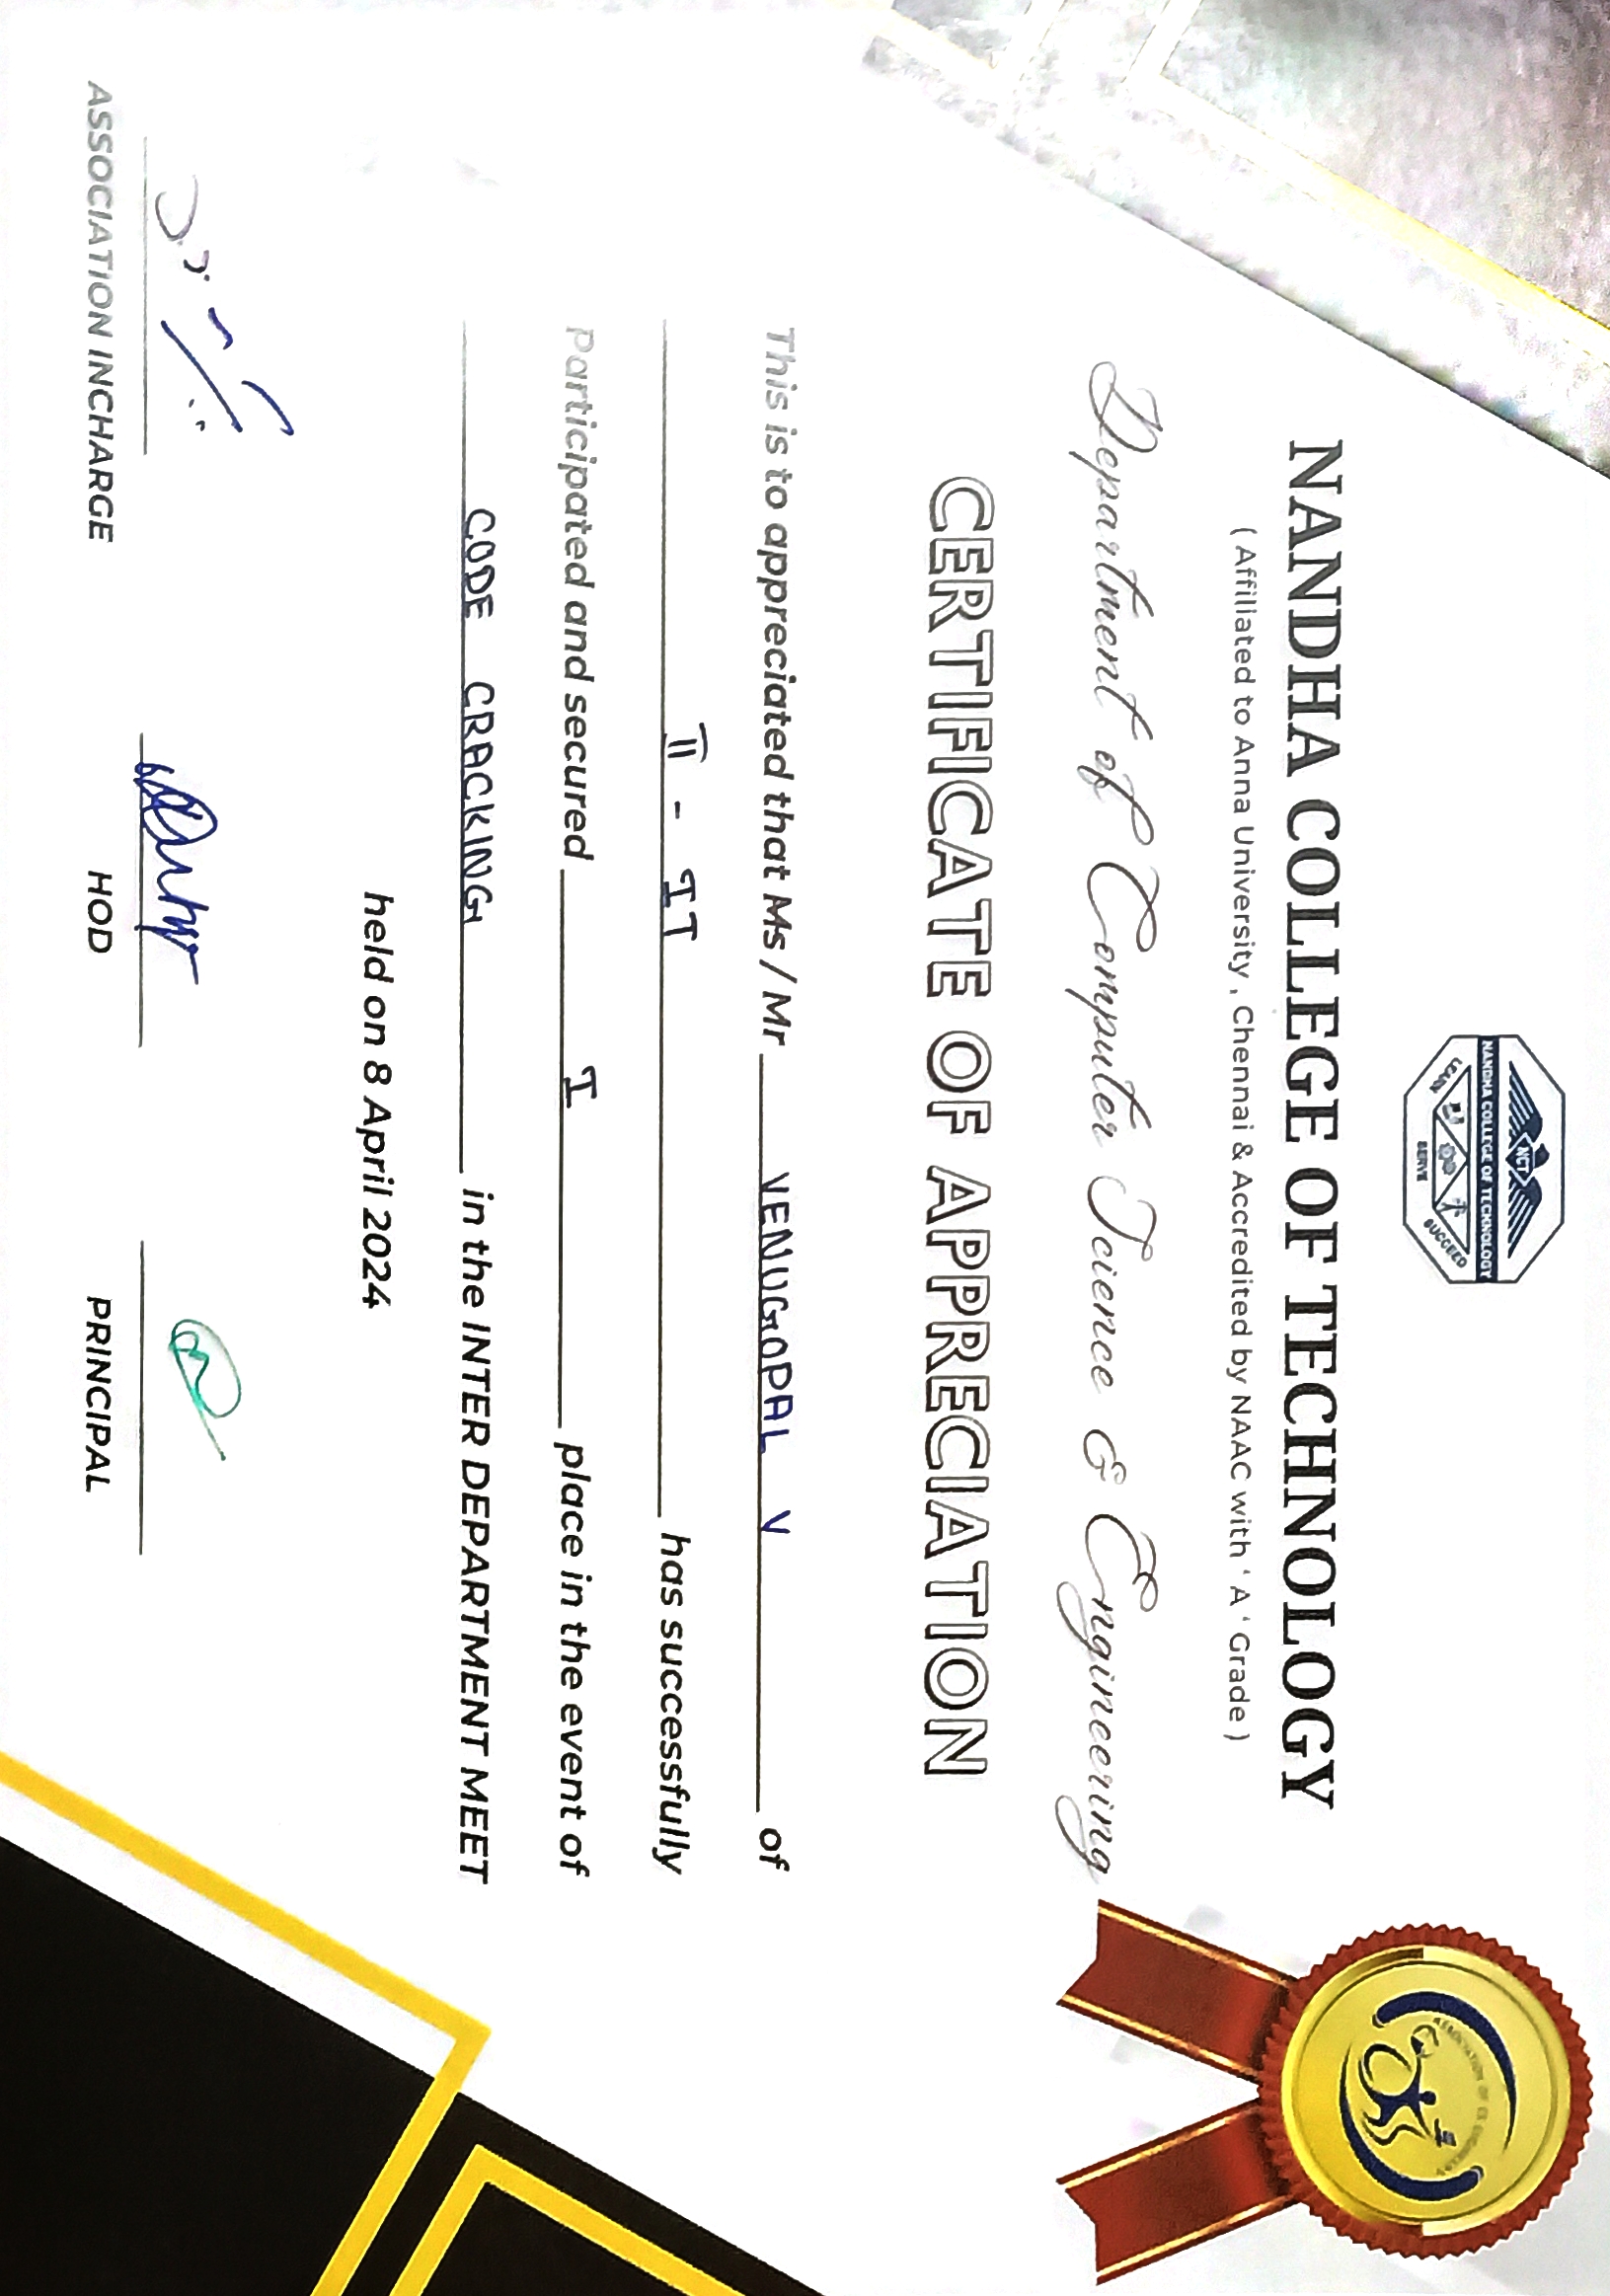 NCT
NANDHA COLLEGE OF TECHNOLOGY
LEARN
SERVE
SUCCEED
NANDHA COLLEGE OF TECHNOLOGY
( Affiliated to Anna University , Chennai & Accredited by NAAC with ' A ' Grade )
Department of Computer Science & Engineering
CERTIFICATE OF APPRECIATION
This is to appreciated that Ms / Mr VENUGOPAL V of
II - IT has successfully
Participated and secured I place in the event of
CODE CRACKING in the INTER DEPARTMENT MEET
held on 8 April 2024
ASSOCIATION INCHARGE
HOD
PRINCIPAL